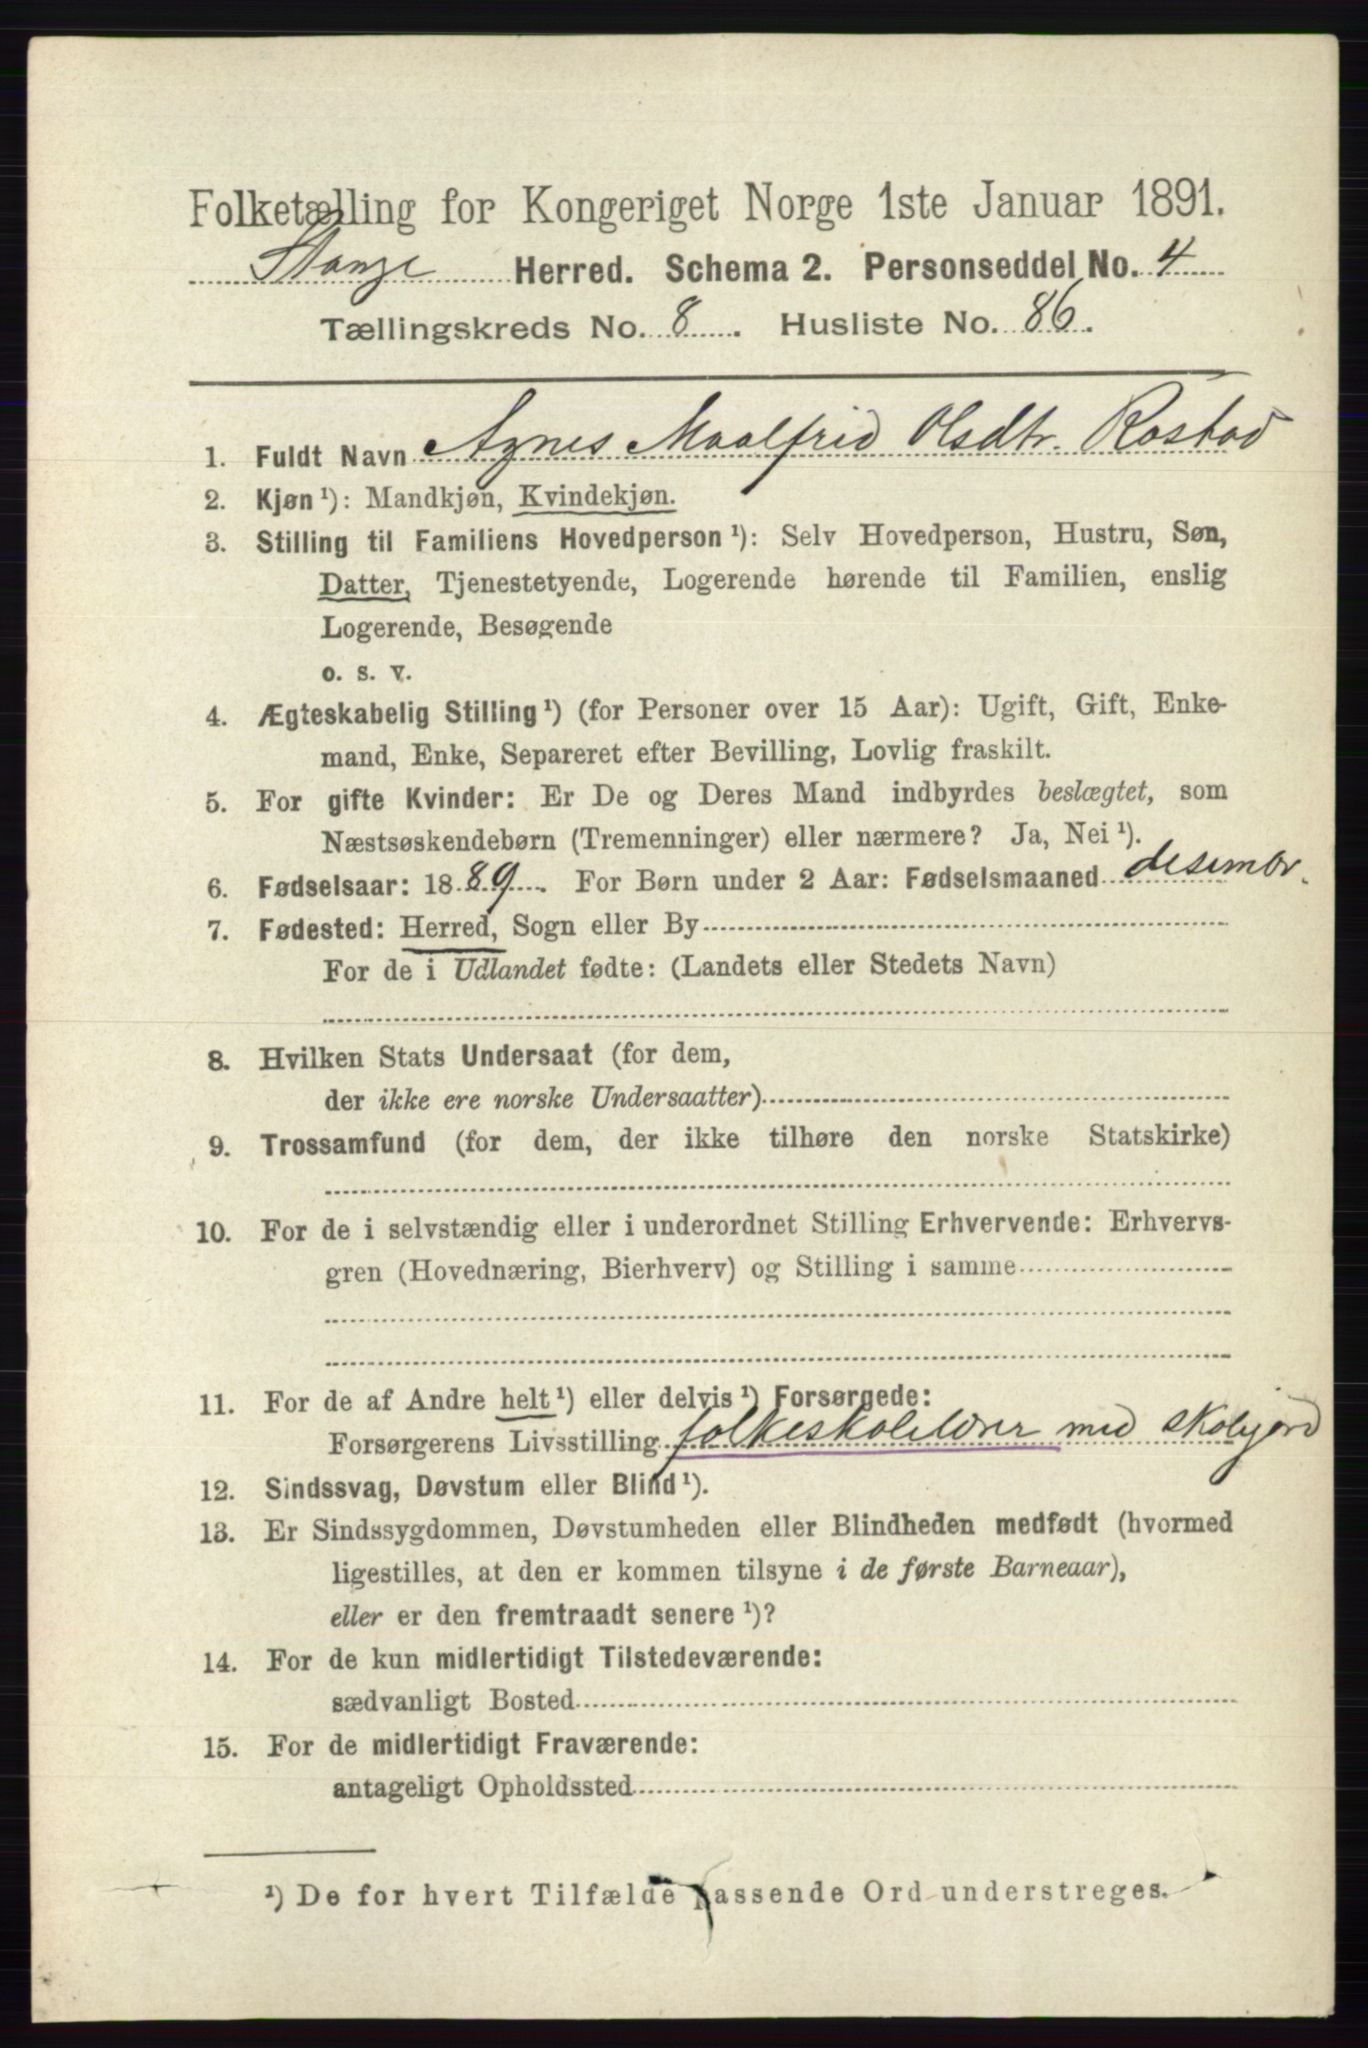 Folketælling for Kongeriget Norge 1ste Januar 1891.
Stange Herred. Schema 2. Personseddel No. 4
Tællingskreds No. 8. Husliste No. 86.
1. Fuldt Navn Agnes Maalfrid Olsdtr. Rostad
2. Kjøn ¹): Mandkjøn, Kvindekjøn.
3. Stilling til Familiens Hovedperson ¹): Selv Hovedperson, Hustru, Søn,
Datter, Tjenestetyende, Logerende hørende til Familien, enslig
Logerende, Besøgende
o. s. v.
4. Ægteskabelig Stilling ¹) (for Personer over 15 Aar): Ugift, Gift, Enke-
mand, Enke, Separeret efter Bevilling, Lovlig fraskilt.
5. For gifte Kvinder: Er De og Deres Mand indbyrdes beslægtet, som
Næstsøskendebørn (Tremenninger) eller nærmere? Ja, Nei ¹).
6. Fødselsaar: 1889. For Børn under 2 Aar: Fødselsmaaned desember.
7. Fødested: Herred, Sogn eller By
For de i Udlandet fødte: (Landets eller Stedets Navn)
8. Hvilken Stats Undersaat (for dem,
der ikke ere norske Undersaatter)
9. Trossamfund (for dem, der ikke tilhøre den norske Statskirke)
10. For de i selvstændig eller i underordnet Stilling Erhvervende: Erhvervs-
gren (Hovednæring, Bierhverv) og Stilling i samme
11. For de af Andre helt ¹) eller delvis ¹) Forsørgede:
Forsørgerens Livsstilling folkeskolelærer med skolejord
12. Sindssvag, Døvstum eller Blind ¹).
13. Er Sindssygdommen, Døvstumheden eller Blindheden medfødt (hvormed
ligestilles, at den er kommen tilsyne i de første Barneaar),
eller er den fremtraadt senere ¹)?
14. For de kun midlertidigt Tilstedeværende:
sædvanligt Bosted
15. For de midlertidigt Fraværende:
antageligt Opholdssted
¹) De for hvert Tilfælde passende Ord understreges.